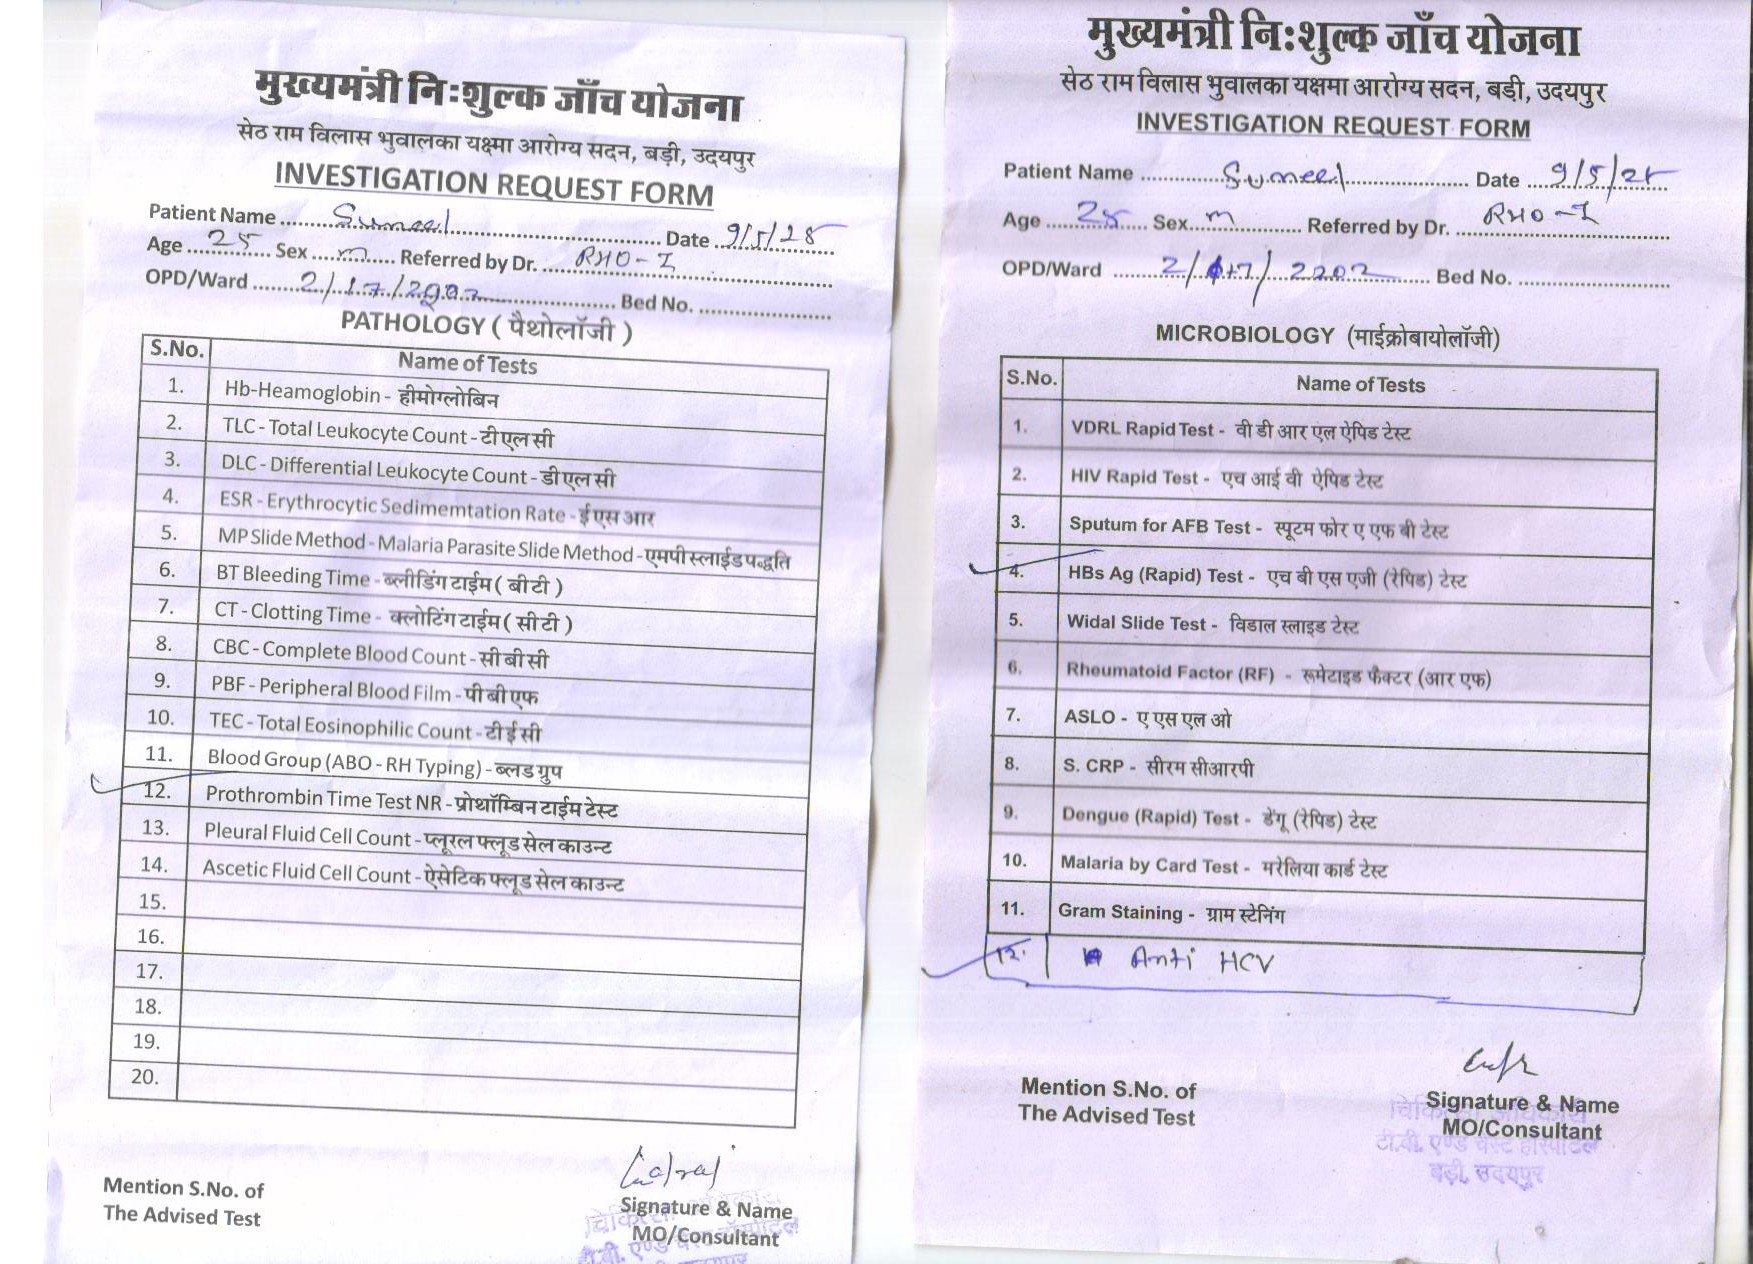 मुख्यमंत्री निःशुल्क जाँच योजना
सेठ राम विलास भुवालका यक्ष्मा आरोग्य सदन, बड़ी, उदयपुर
INVESTIGATION REQUEST FORM
Patient Name ... Date 9/5/25
Age 25 Sex m Referred by Dr. RHO-I
OPD/Ward 2/17/ Bed No.
PATHOLOGY ( पैथोलॉजी )
S.No. Name of Tests
1. Hb-Heamoglobin - हीमोग्लोबिन
2. TLC - Total Leukocyte Count - टी एल सी
3. DLC - Differential Leukocyte Count - डी एल सी
4. ESR - Erythrocytic Sedimemtation Rate - ई एस आर
5. MP Slide Method - Malaria Parasite Slide Method - एमपी स्लाईड पद्धति
6. BT Bleeding Time - ब्लीडिंग टाईम ( बी टी )
7. CT - Clotting Time - क्लोटिंग टाईम ( सी टी )
8. CBC - Complete Blood Count - सी बी सी
9. PBF - Peripheral Blood Film - पी बी एफ
10. TEC - Total Eosinophilic Count - टी ई सी
11. Blood Group (ABO - RH Typing) - ब्लड ग्रुप
12. Prothrombin Time Test NR - प्रोथॉम्बिन टाईम टेस्ट
13. Pleural Fluid Cell Count - प्लूरल फ्लूड सेल काउन्ट
14. Ascetic Fluid Cell Count - ऐसेटिक फ्लूड सेल काउन्ट
15.
16.
17.
18.
19.
20.
Mention S.No. of
The Advised Test
Signature & Name
MO/Consultant
मुख्यमंत्री निःशुल्क जाँच योजना
सेठ राम विलास भुवालका यक्षमा आरोग्य सदन, बड़ी, उदयपुर
INVESTIGATION REQUEST FORM
Patient Name ... Date 9/5/25
Age 25 Sex m Referred by Dr. RHO-I
OPD/Ward Bed No.
MICROBIOLOGY (माईक्रोबायोलॉजी)
S.No. Name of Tests
1. VDRL Rapid Test - वी डी आर एल ऐपिड टेस्ट
2. HIV Rapid Test - एच आई वी ऐपिड टेस्ट
3. Sputum for AFB Test - स्पूटम फोर ए एफ बी टेस्ट
4. HBs Ag (Rapid) Test - एच बी एस एजी (रेपिड) टेस्ट
5. Widal Slide Test - विडाल स्लाइड टेस्ट
6. Rheumatoid Factor (RF) - रूमेटाइड फैक्टर (आर एफ)
7. ASLO - ए एस एल ओ
8. S. CRP - सीरम सीआरपी
9. Dengue (Rapid) Test - डेंगू (रेपिड) टेस्ट
10. Malaria by Card Test - मरेलिया कार्ड टेस्ट
11. Gram Staining - ग्राम स्टेनिंग
12. Anti HCV
Mention S.No. of
The Advised Test
Signature & Name
MO/Consultant
चिकित्सा अधिकारी
टी.बी. एण्ड चेस्ट हॉस्पिटल
बड़ी, उदयपुर